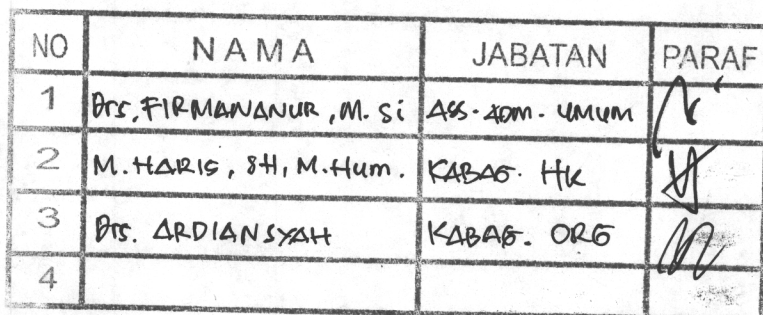 NO NAMA JABATAN PARAF
1 Drs, FIRMANANUR, M. Si ASS. ADM. UMUM
2 M. HARIS, SH, M. Hum. KABAG. HK
3 Drs. ARDIANSYAH KABAG. ORG
4